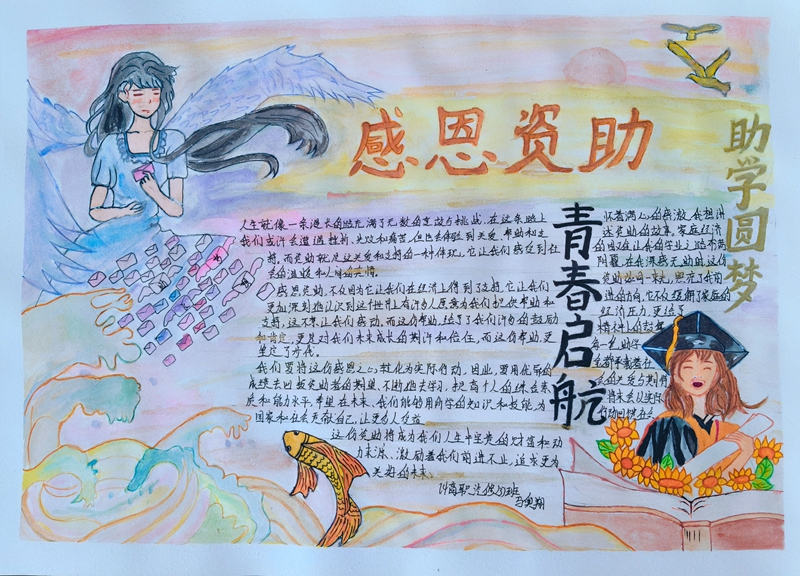 感恩资助
助学圆梦
青春启航
人生就像一条漫长的路充满了无数的变故与挑战。在这条路上
我们或许会遭遇挫折、失败和痛苦,但也会体验到关爱、帮助和支
持。而资助就是这关爱和支持的一种体现。它让我们感受到社
会的温暖和人性的光辉。
感恩资助,不仅因为它让我们在经济上得到了支持,它让我们
更加深刻地认识到这个世界上有许多人愿意为我们提供帮助和
支持,这不禁让我们感动。而这份帮助,给予了我们许多的鼓励
和肯定,更是对我们未来成长的期许和信任。而这份帮助,更
坚定了方向。
我们要将这份感恩之心转化为实际行动。因此,要用优异的
成绩去回报资助者的期望,不断地去学习,提高个人的综合素
质和能力水平,希望在未来,我们能够用所学的知识和技能为
国家和社会贡献自己,让更多人受益
这份资助将成为我们人生中宝贵的财富和动
力来源、激励着我们前进不止,追求更为
美好的未来。
怀着满心的感激,我想讲
述资助的故事,家庭经济
的困难让我的学业之路布满
阴霾,在我深感无助时,这份
资助如同一束光,照亮了我前
进的方向,它不仅缓解了家庭的
经济压力,更给了
精神上的鼓舞
每一笔助学